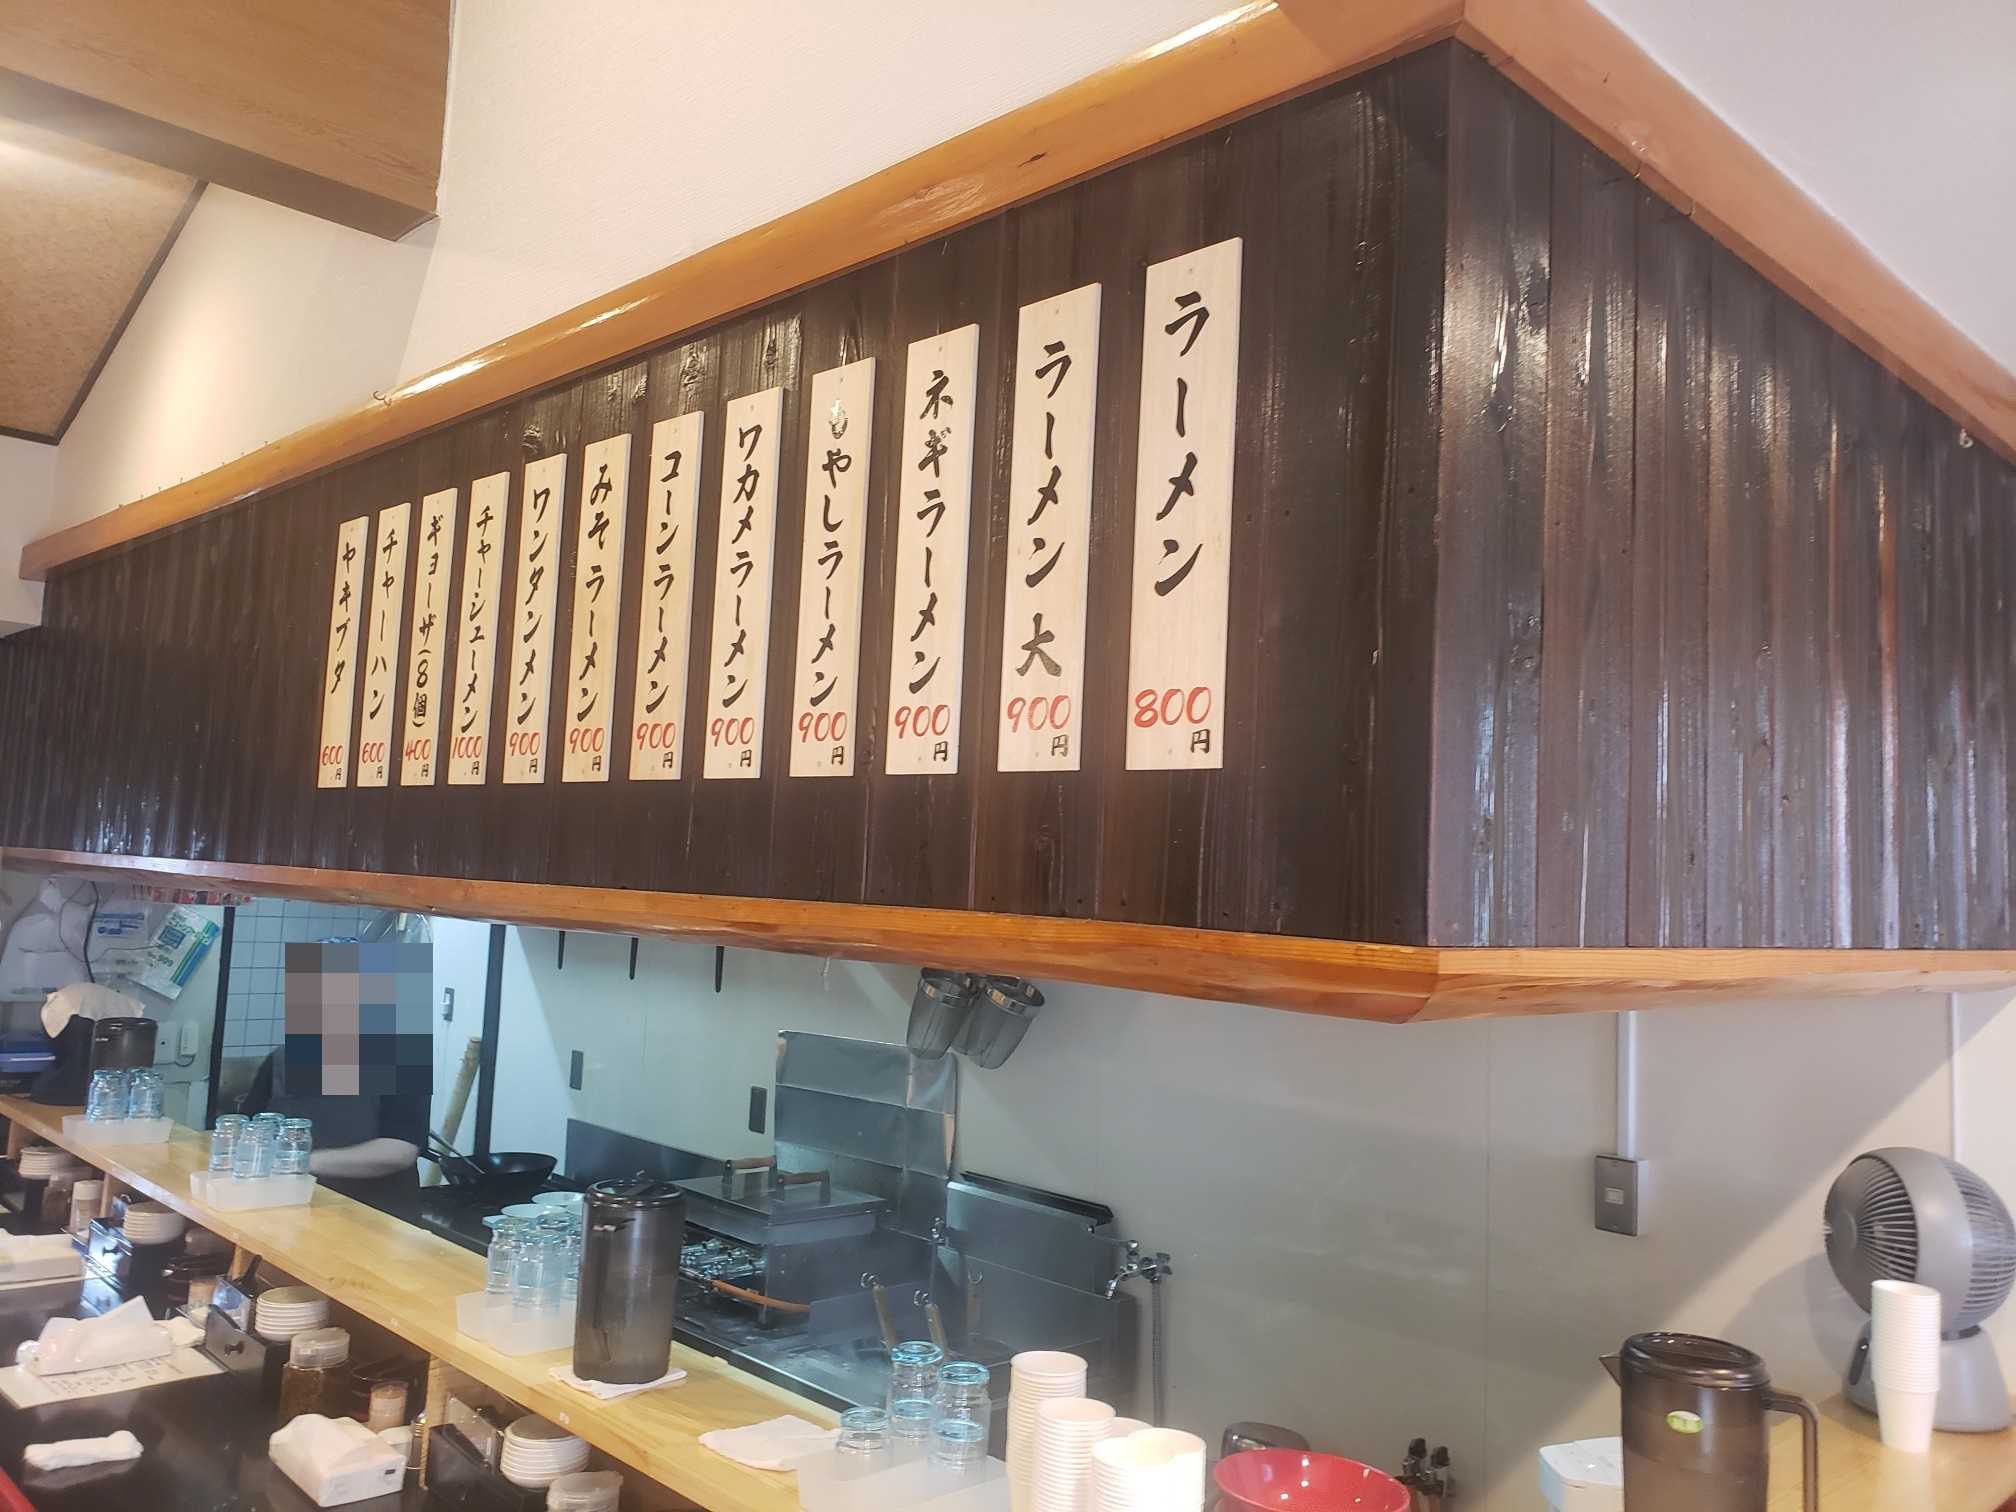 ラーメン 800円
ラーメン 大 900円
ネギラーメン 900円
もやしラーメン 900円
ワカメラーメン 900円
コーンラーメン 900円
みそラーメン 900円
ワンタンメン 900円
チャーシューメン 1000円
ギョーザ(8個) 400円
チャーハン 600円
ヤキブタ 600円